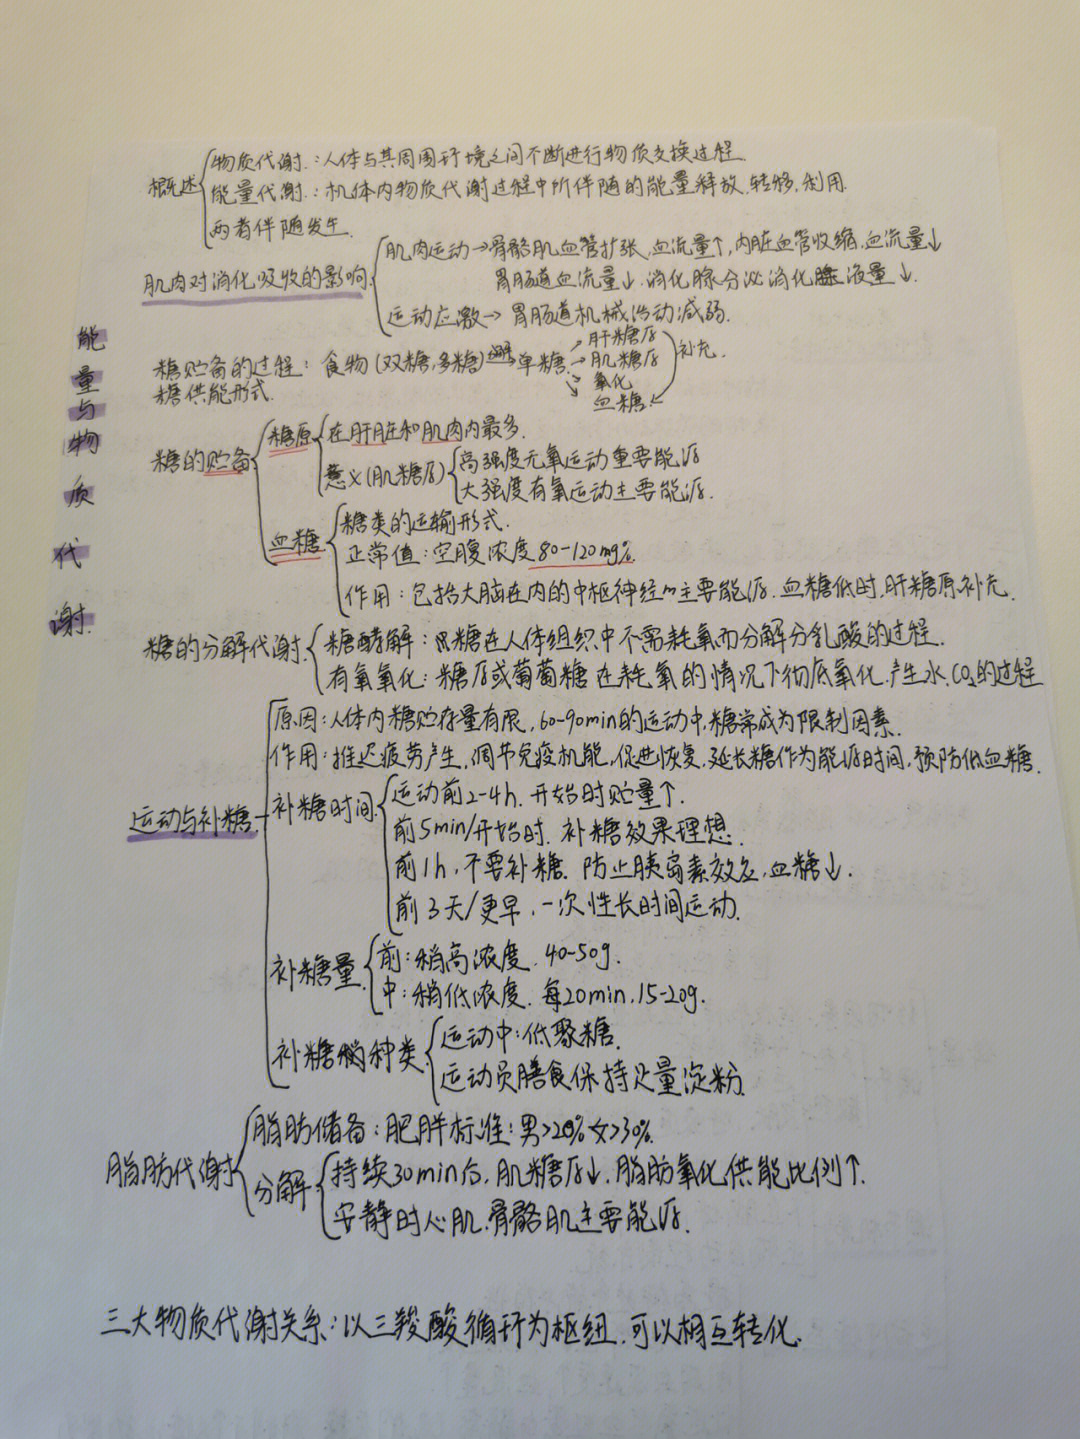 能量与物质代谢.
概述
物质代谢.:人体与其周围环境之间不断进行物质交换过程.
能量代谢.:机体内物质代谢过程中所伴随的能量释放.转移.利用.
两者伴随发生.
肌肉对消化吸收的影响.
肌肉运动→骨骼肌血管扩张,血流量↑,内脏血管收缩,血流量↓
胃肠道血流量↓.消化腺分泌消化腺液量↓.
运动应激→胃肠道机械活动减弱.
糖贮备的过程:食物(双糖,多糖)→单糖→肝糖原 肌糖原 氧化 血糖.补充.
糖供能形式.
糖的贮备
糖原
在肝脏和肌肉内最多.
意义(肌糖原)
高强度无氧运动重要能源
大强度有氧运动主要能源.
血糖
糖类的运输形式.
正常值:空腹浓度80-120mg%.
作用:包括大脑在内的中枢神经的主要能源.血糖低时,肝糖原补充.
糖的分解代谢.
糖酵解:糖在人体组织中不需耗氧而分解分乳酸的过程.
有氧氧化:糖原或葡萄糖在耗氧的情况下彻底氧化.产生水.CO₂的过程
运动与补糖.
原因:人体内糖贮存量有限,60-90min的运动中,糖常成为限制因素.
作用:推迟疲劳产生,调节免疫机能,促进恢复.延长糖作为能源时间,预防低血糖.
补糖时间
运动前2-4h.开始时贮量↑.
前5min/开始时.补糖效果理想.
前1h,不要补糖.防止胰岛素效应,血糖↓.
前3天/更早,一次性长时间运动.
补糖量
前:稍高浓度.40-50g.
中:稍低浓度.每20min,15-20g.
补糖种类
运动中:低聚糖.
运动员膳食保持足量淀粉.
脂肪代谢
脂肪储备:肥胖标准:男>20%女>30%.
分解
持续30min后,肌糖原↓.脂肪氧化供能比例↑.
安静时心肌.骨骼肌主要能源.
三大物质代谢关系:以三羧酸循环为枢纽.可以相互转化.